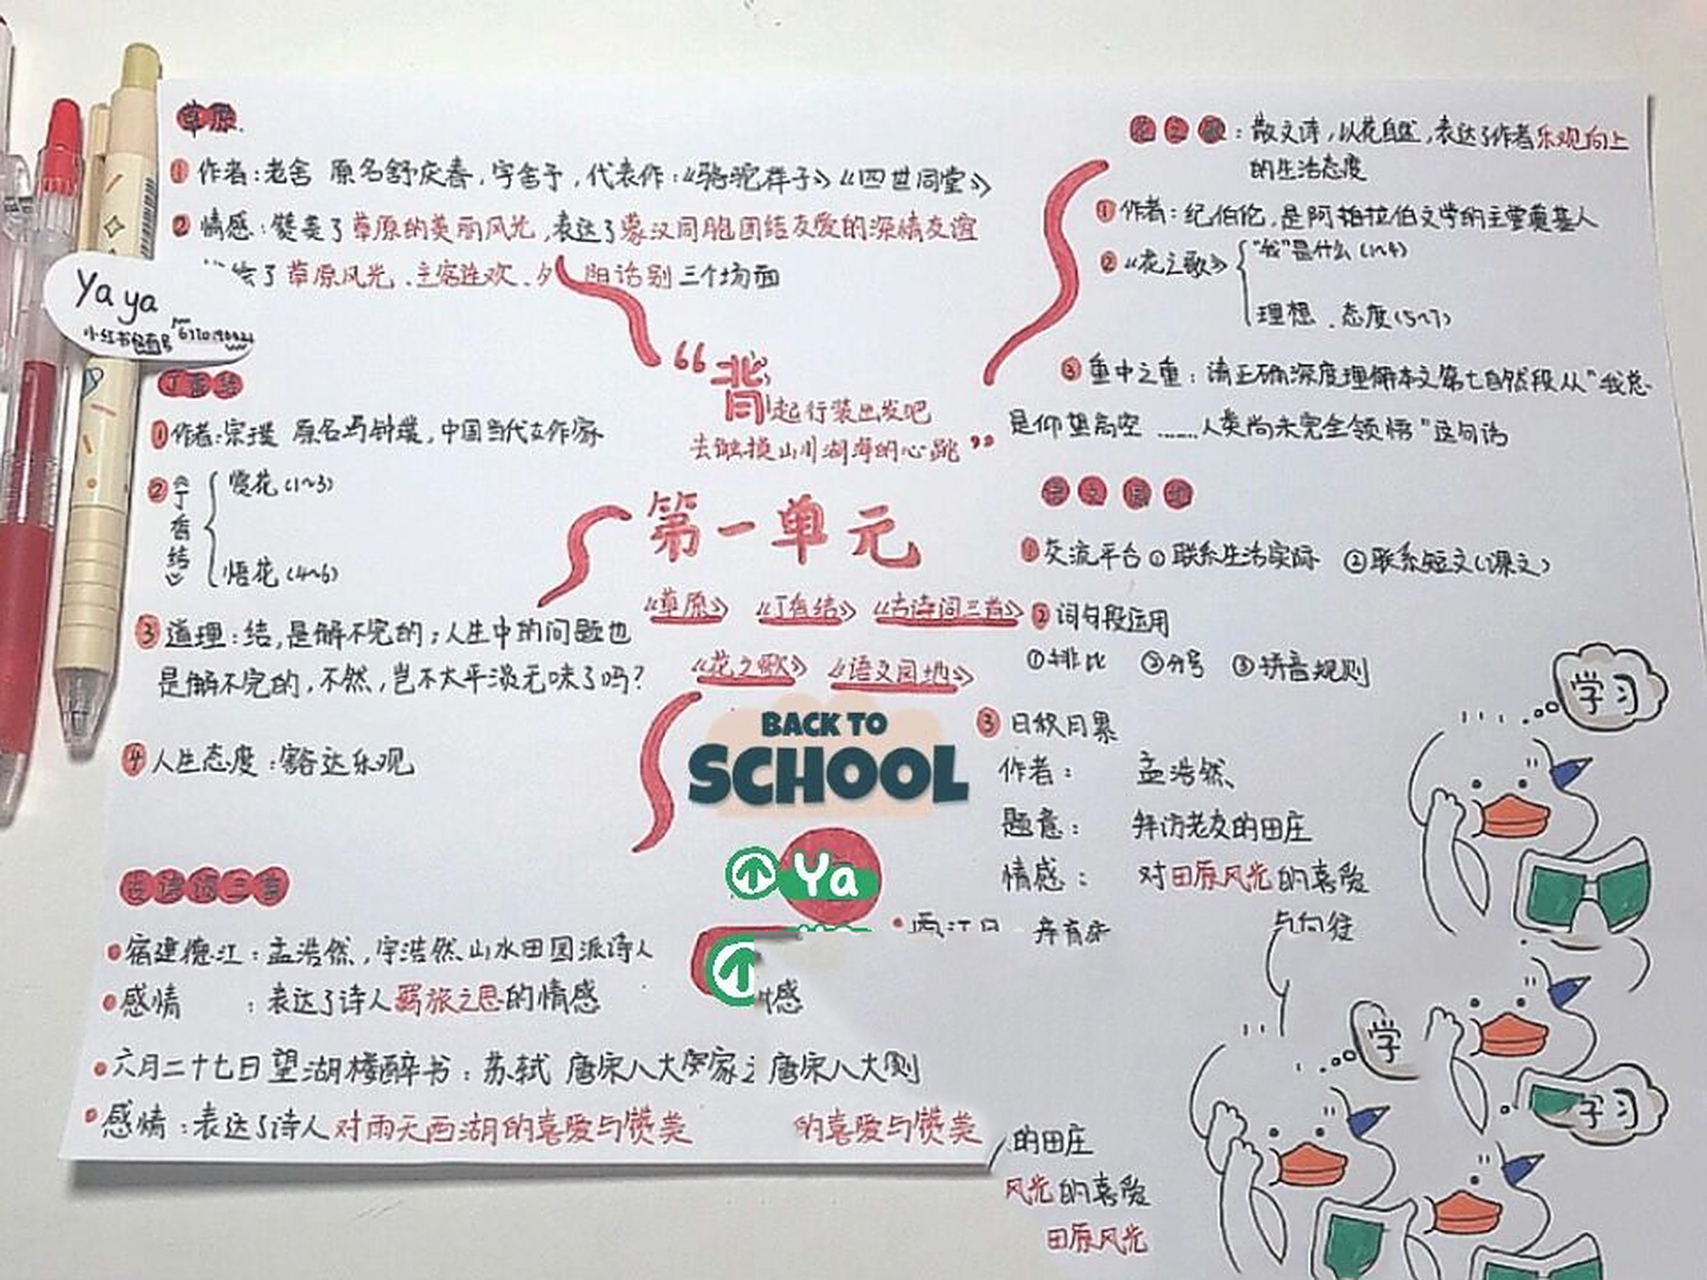 草原
① 作者：老舍 原名舒庆春，字舍予，代表作：《骆驼祥子》《四世同堂》
② 情感：赞美了草原的美丽风光，表达了蒙汉同胞团结友爱的深情友谊
绘了 草原风光、主客连欢、夕阳话别 三个场面
Ya ya
小红书
丁香结
① 作者：宗璞 原名冯钟璞，中国当代女作家
② 《丁香结》
爱花（1~3）
悟花（4~6）
③ 道理：结，是解不完的；人生中的问题也
是解不完的，不然，岂不太平淡无味了吗？
④ 人生态度：豁达乐观
古诗词三首
宿建德江：孟浩然，字浩然、山水田园派诗人
感情：表达了诗人羁旅之思的情感
六月二十七日望湖楼醉书：苏轼 唐宋八大家 唐宋八大
感情：表达了诗人对雨天西湖的喜爱与赞美
的喜爱与赞美
“背
起行装出发吧
去触摸山川湖海的心跳”
第一单元
《草原》 《丁香结》 《古诗词三首》
《花之歌》 《语文园地》
BACK TO
SCHOOL
Ya
感
花之歌：散文诗，以花自述，表达了作者乐观向上
的生活态度
① 作者：纪伯伦，是阿拉伯文学的主要奠基人
② 《花之歌》
“我”是什么（1~4）
理想、态度（5~7）
③ 重中之重：请正确深度理解本文第七自然段从“我总
是仰望高空 ……人类尚未完全领悟”这句话
语文园地
① 交流平台 ① 联系生活实际 ② 联系短文（课文）
② 词句段运用
① 排比 ② 分号 ③ 拼音规则
③ 日积月累
作者： 孟浩然
题意： 拜访老友的田庄
情感： 对田原风光的喜爱
与向往
学习
学
学习
的田庄
风光的喜爱
田原风光